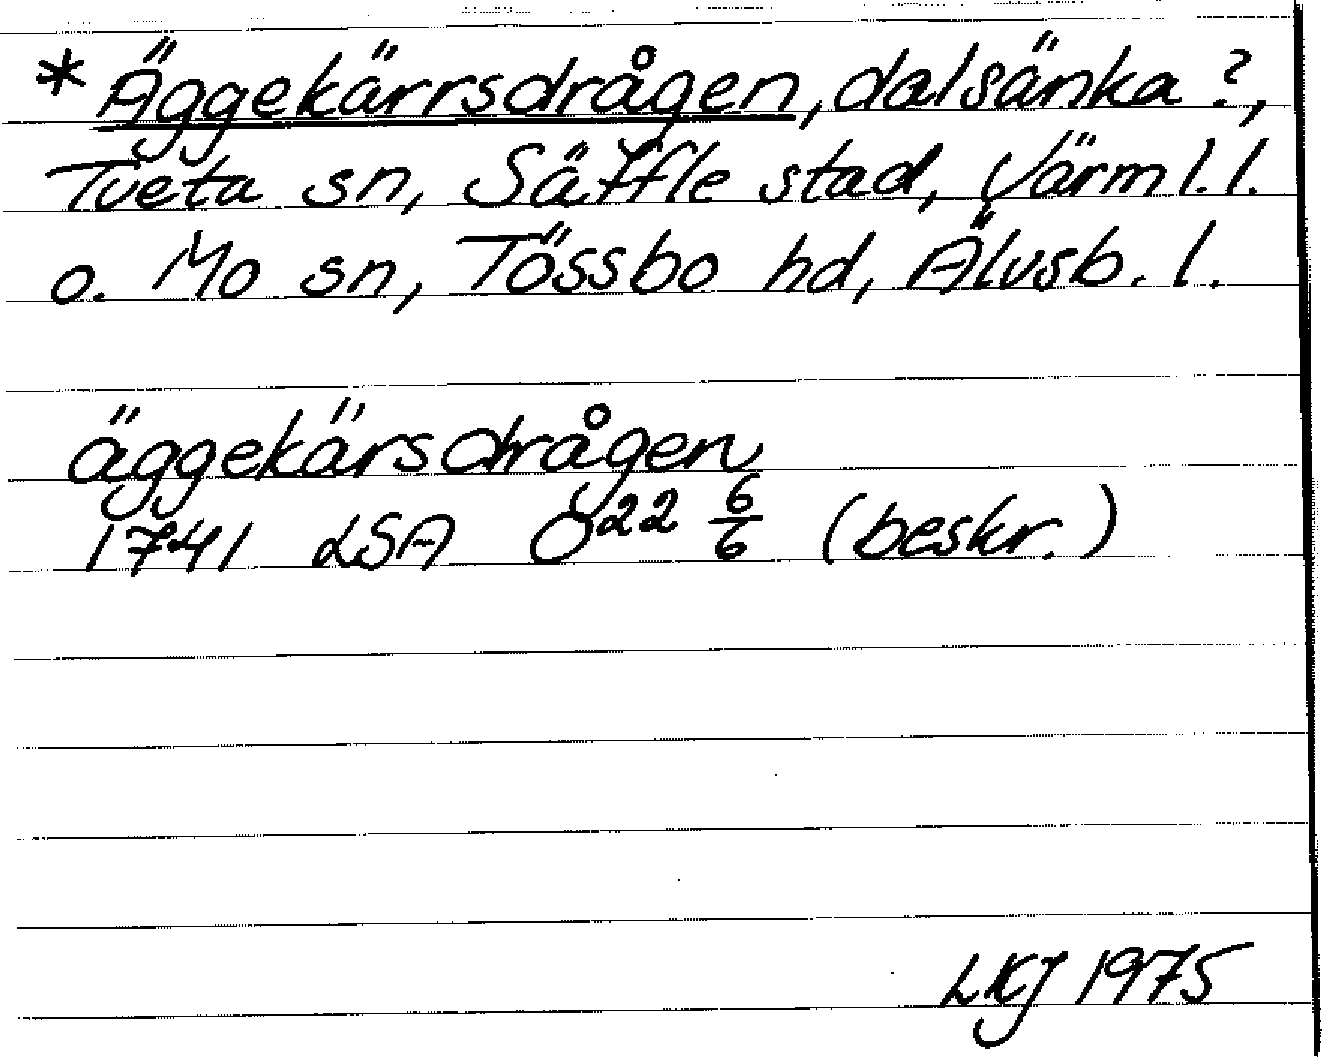 * Äggekärrsdrågen, dalsänka ?,
Tveta sn, Säffle stad, Värml. l.
o. Mo sn, Tössbo hd, Älvsb. l.
äggekärsdrågen
1741 LSA O22 6/6 (beskr.)
LKJ 1975